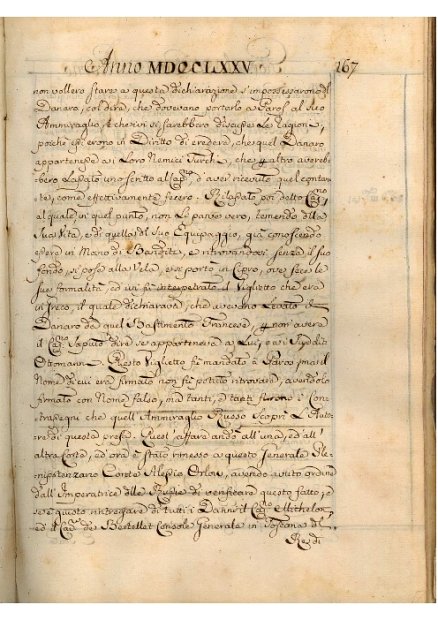 Anno MDCCLXXV 167
non vollero stare a questa dichiarazione s'impossessarono del
Danaro, col dire, che dovevano portarlo a Paros al suo
Ammiraglio, et che ivi si sarebbero discusse le ragioni,
poiche essi erono in Diritto di credere, che quel Danaro
appartenesse ai Loro Nemici Turchi, che altro avereb-
bero Levato uno scritto al d'aver ricevuto quel contan-
te, come effettivamente fecero. Rilasciato poi detto
al quale in quel punto, non Le parve vero, temendo della
sua Vita, e di quella del suo Equipaggio, già conoscendo
essere in Mano di Banditi, e ritrovandosi senza il suo
fondo, si pose alla Vela, e si portò in Cipro, ove fece le
sue formalità, ed ivi fù interpetrato il Viglietto che era
in Greco, il quale dichiarava, che avevano Levato il
Danaro da quel Bastimento Francese, non avere
il Saputo dire se apparteneva a Lui, o ai Sudditi
Ottomanni. Questo Viglietto fù mandato a Paros, ma il
Nome di cui era firmato non fù potuto ritrovare, avendolo
firmato con Nome falso, mà tanti, e tanti furono i Con-
trasegni che quell'Ammiraglio Russo Scoprì L'Auto-
re di questa presa. Quest'affare andò all'una, ed all'
altra Corte, ed ora è stato rimesso a questo Generale Ple-
nipotenziario Conte Alessio Orlow, avendo avuto ordine
dall'Imperatrice delle Russie di verificare questo fatto, e
se è questo rintregare di tutti i Danni il
ed il de Bertellet Console Generale in Toscana del
Re di